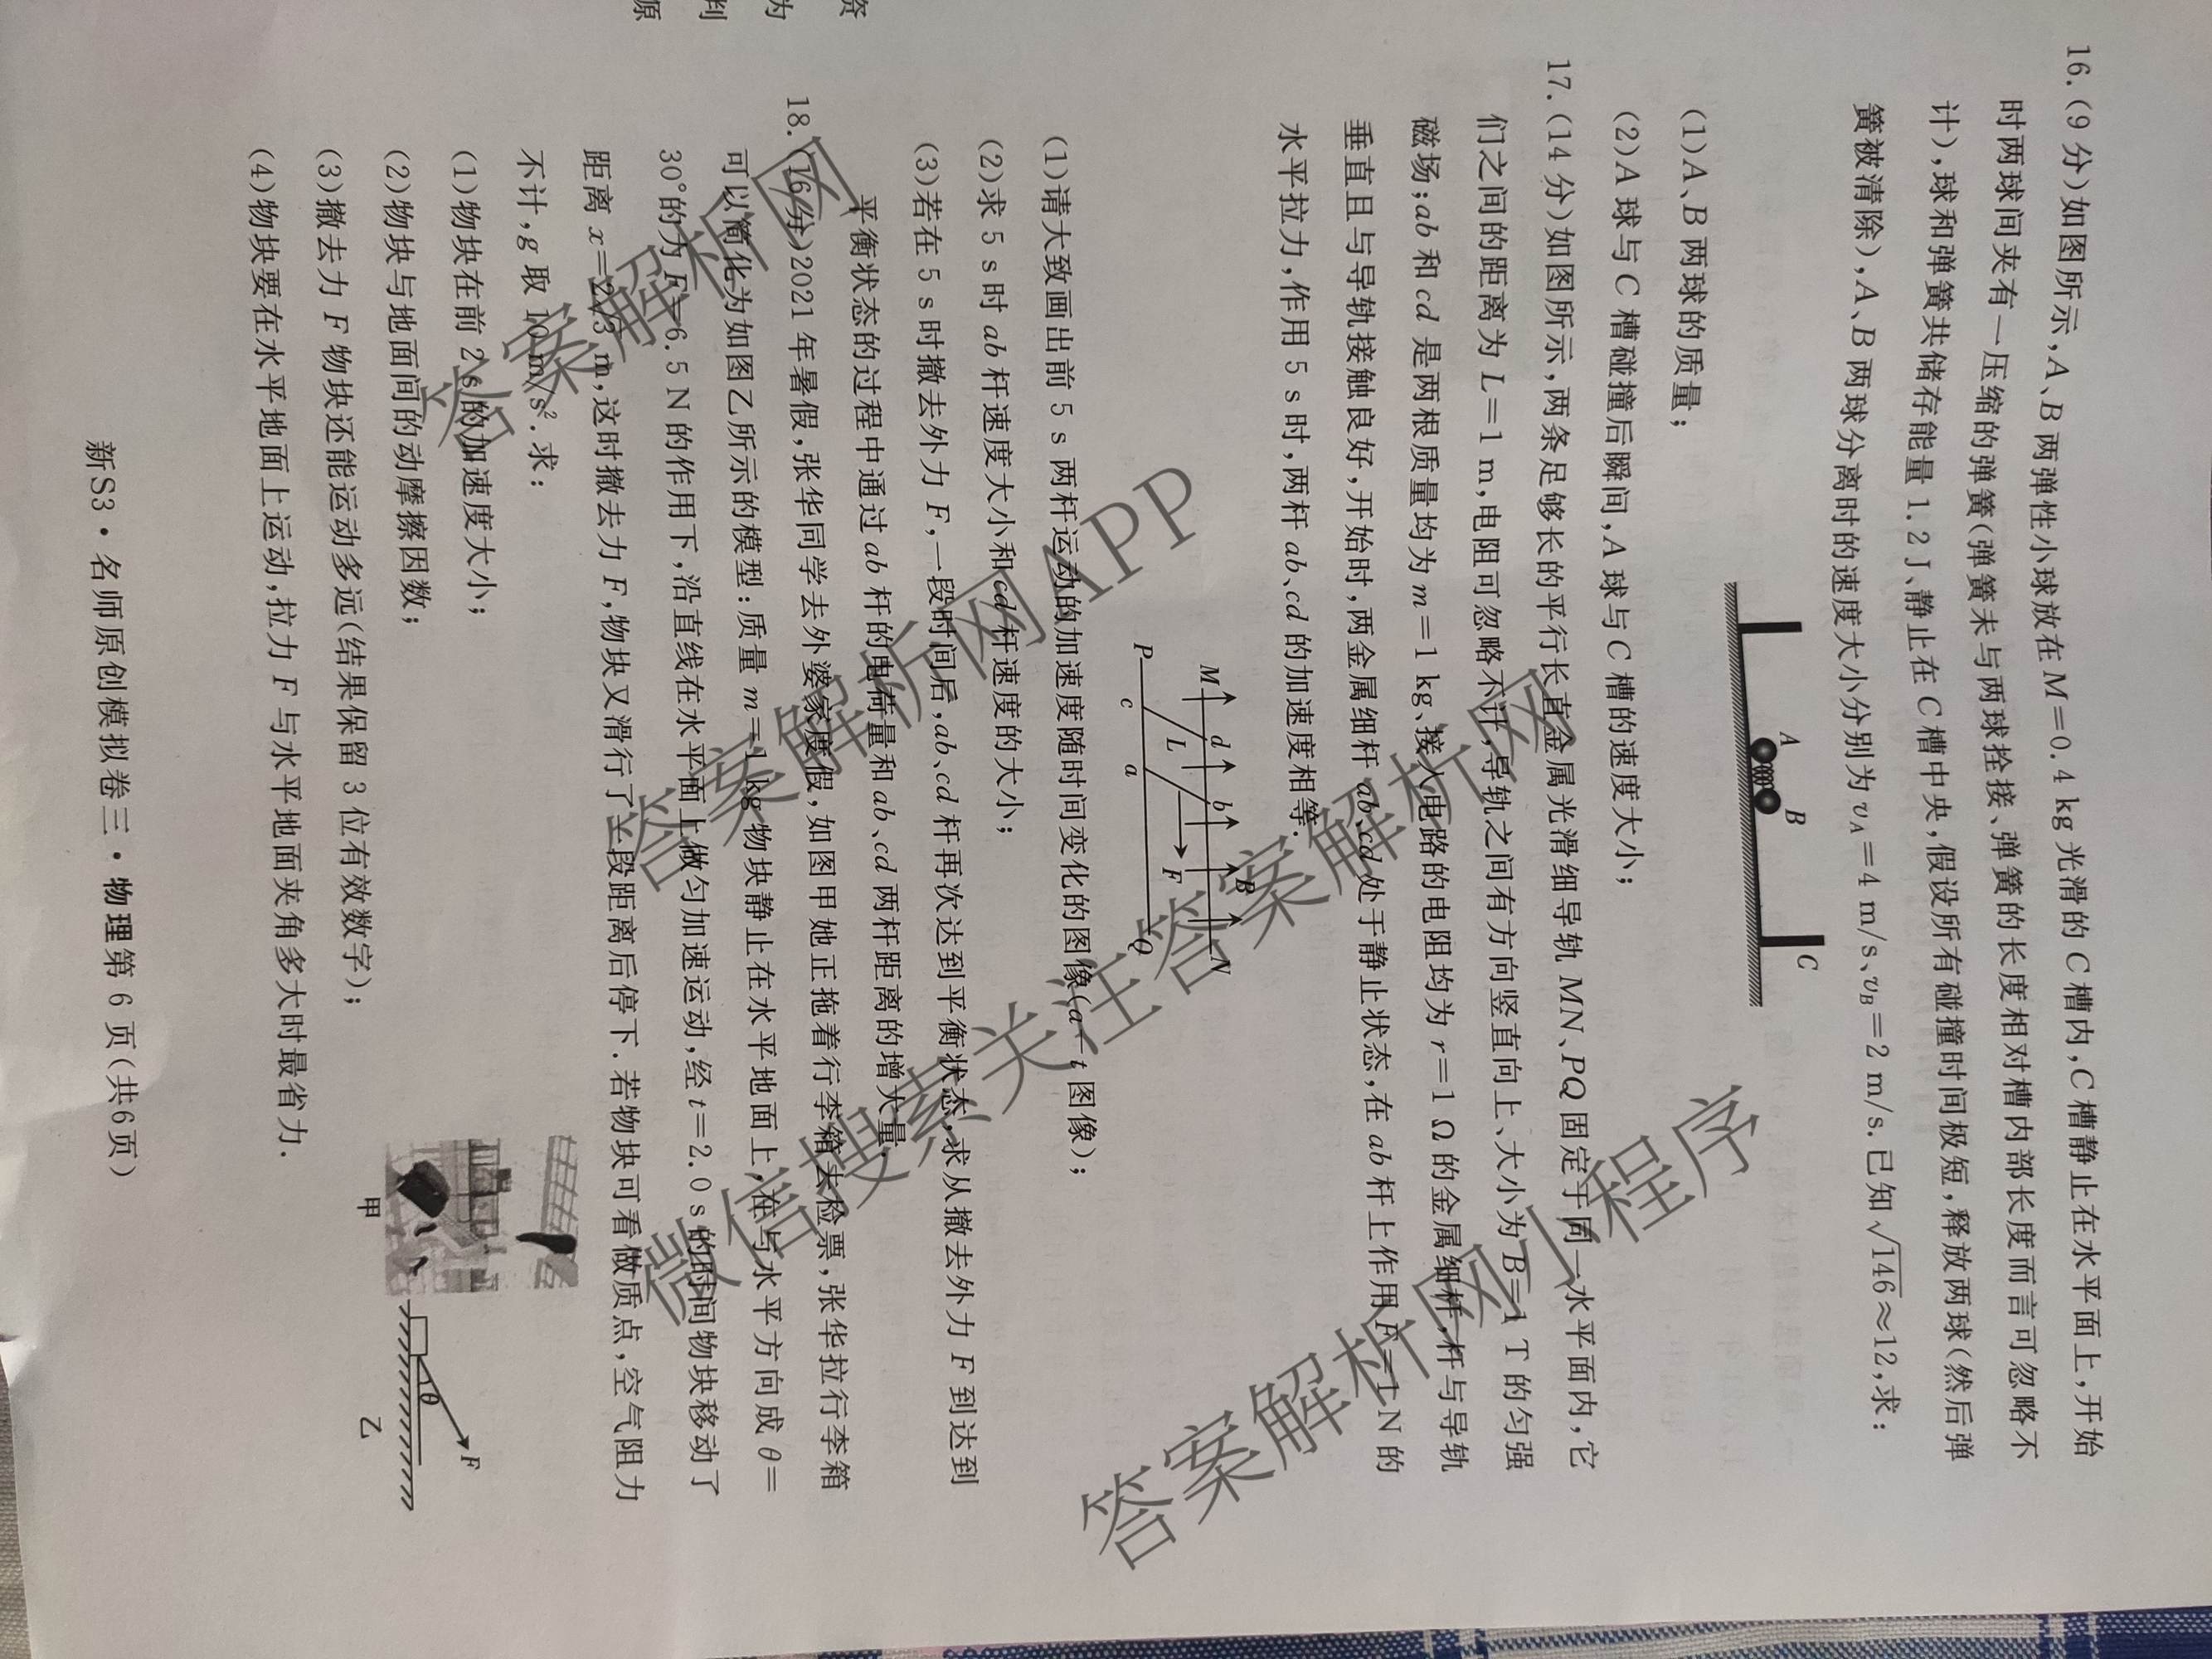 16.(9分)如图所示,A、B两弹性小球放在M=0.4 kg光滑的C槽内,C槽静止在水平面上,开始
时两球间夹有一压缩的弹簧(弹簧未与两球拴接、弹簧的长度相对槽内部长度而言可忽略不
计),球和弹簧共储存能量1.2 J、静止在C槽中央,假设所有碰撞时间极短,释放两球(然后弹
簧被清除),A、B两球分离时的速度大小分别为v_A=4 m/s、v_B=2 m/s.已知√146≈12,求:
A
B
C
(1)A、B两球的质量;
(2)A球与C槽碰撞后瞬间,A球与C槽的速度大小;
17.(14分)如图所示,两条足够长的平行长直金属光滑细导轨MN、PQ固定于同一水平面内,它
们之间的距离为L=1 m,电阻可忽略不计,导轨之间有方向竖直向上、大小为B=1 T的匀强
磁场;ab和cd是两根质量均为m=1 kg、接入电路的电阻均为r=1 Ω的金属细杆,杆与导轨
垂直且与导轨接触良好,开始时,两金属细杆ab、cd处于静止状态,在ab杆上作用F=1 N的
水平拉力,作用5 s时,两杆ab、cd的加速度相等.
M d b B N
L F
P c a Q
(1)请大致画出前5 s两杆运动的加速度随时间变化的图像(a—t图像);
(2)求5 s时ab杆速度大小和cd杆速度的大小;
(3)若在5 s时撤去外力F,一段时间后,ab、cd杆再次达到平衡状态,求从撤去外力F到达到
平衡状态的过程中通过ab杆的电荷量和ab、cd两杆距离的增大量.
18.(16分)2021年暑假,张华同学去外婆家度假,如图甲她正拖着行李箱去检票,张华拉行李箱
可以简化为如图乙所示的模型:质量m=1 kg物块静止在水平地面上,在与水平方向成θ=
30°的力F=6.5 N的作用下,沿直线在水平面上做匀加速运动,经t=2.0 s的时间物块移动了
距离x=2√3 m,这时撤去力F,物块又滑行了一段距离后停下.若物块可看做质点,空气阻力
不计,g取10 m/s².求:
(1)物块在前2 s的加速度大小;
(2)物块与地面间的动摩擦因数;
(3)撤去力F物块还能运动多远(结果保留3位有效数字);
(4)物块要在水平地面上运动,拉力F与水平地面夹角多大时最省力.
甲
θ
F
乙
新S3·名师原创模拟卷三·物理第6页(共6页)
资
为
判
原
答案解析网
答案解析网APP
微信搜索关注答案解析网
答案解析网小程序